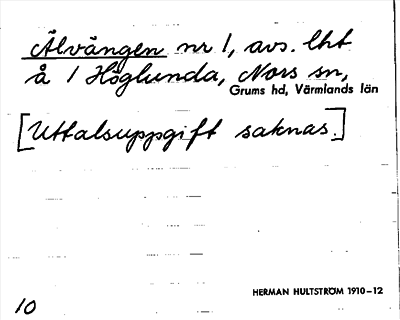 Älvängen nr 1, avs. lht
å 1 Höglunda, Nors sn,
Grums hd, Värmlands län
[Uttalsuppgift saknas.]
HERMAN HULTSTRÖM 1910–12
10